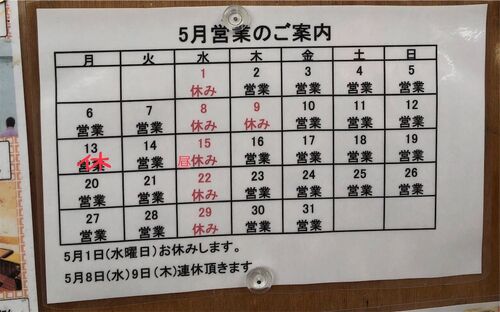 5月営業のご案内
月 火 水 木 金 土 日
1 2 3 4 5
休み 営業 営業 営業 営業
6 7 8 9 10 11 12
営業 営業 休み 休み 営業 営業 営業
13 14 15 16 17 18 19
営業 休 営業 昼 休み 営業 営業 営業 営業
20 21 22 23 24 25 26
営業 営業 休み 営業 営業 営業 営業
27 28 29 30 31
営業 営業 休み 営業 営業
5月1日(水曜日)お休みします。
5月8日(水)9日(木)連休頂きます